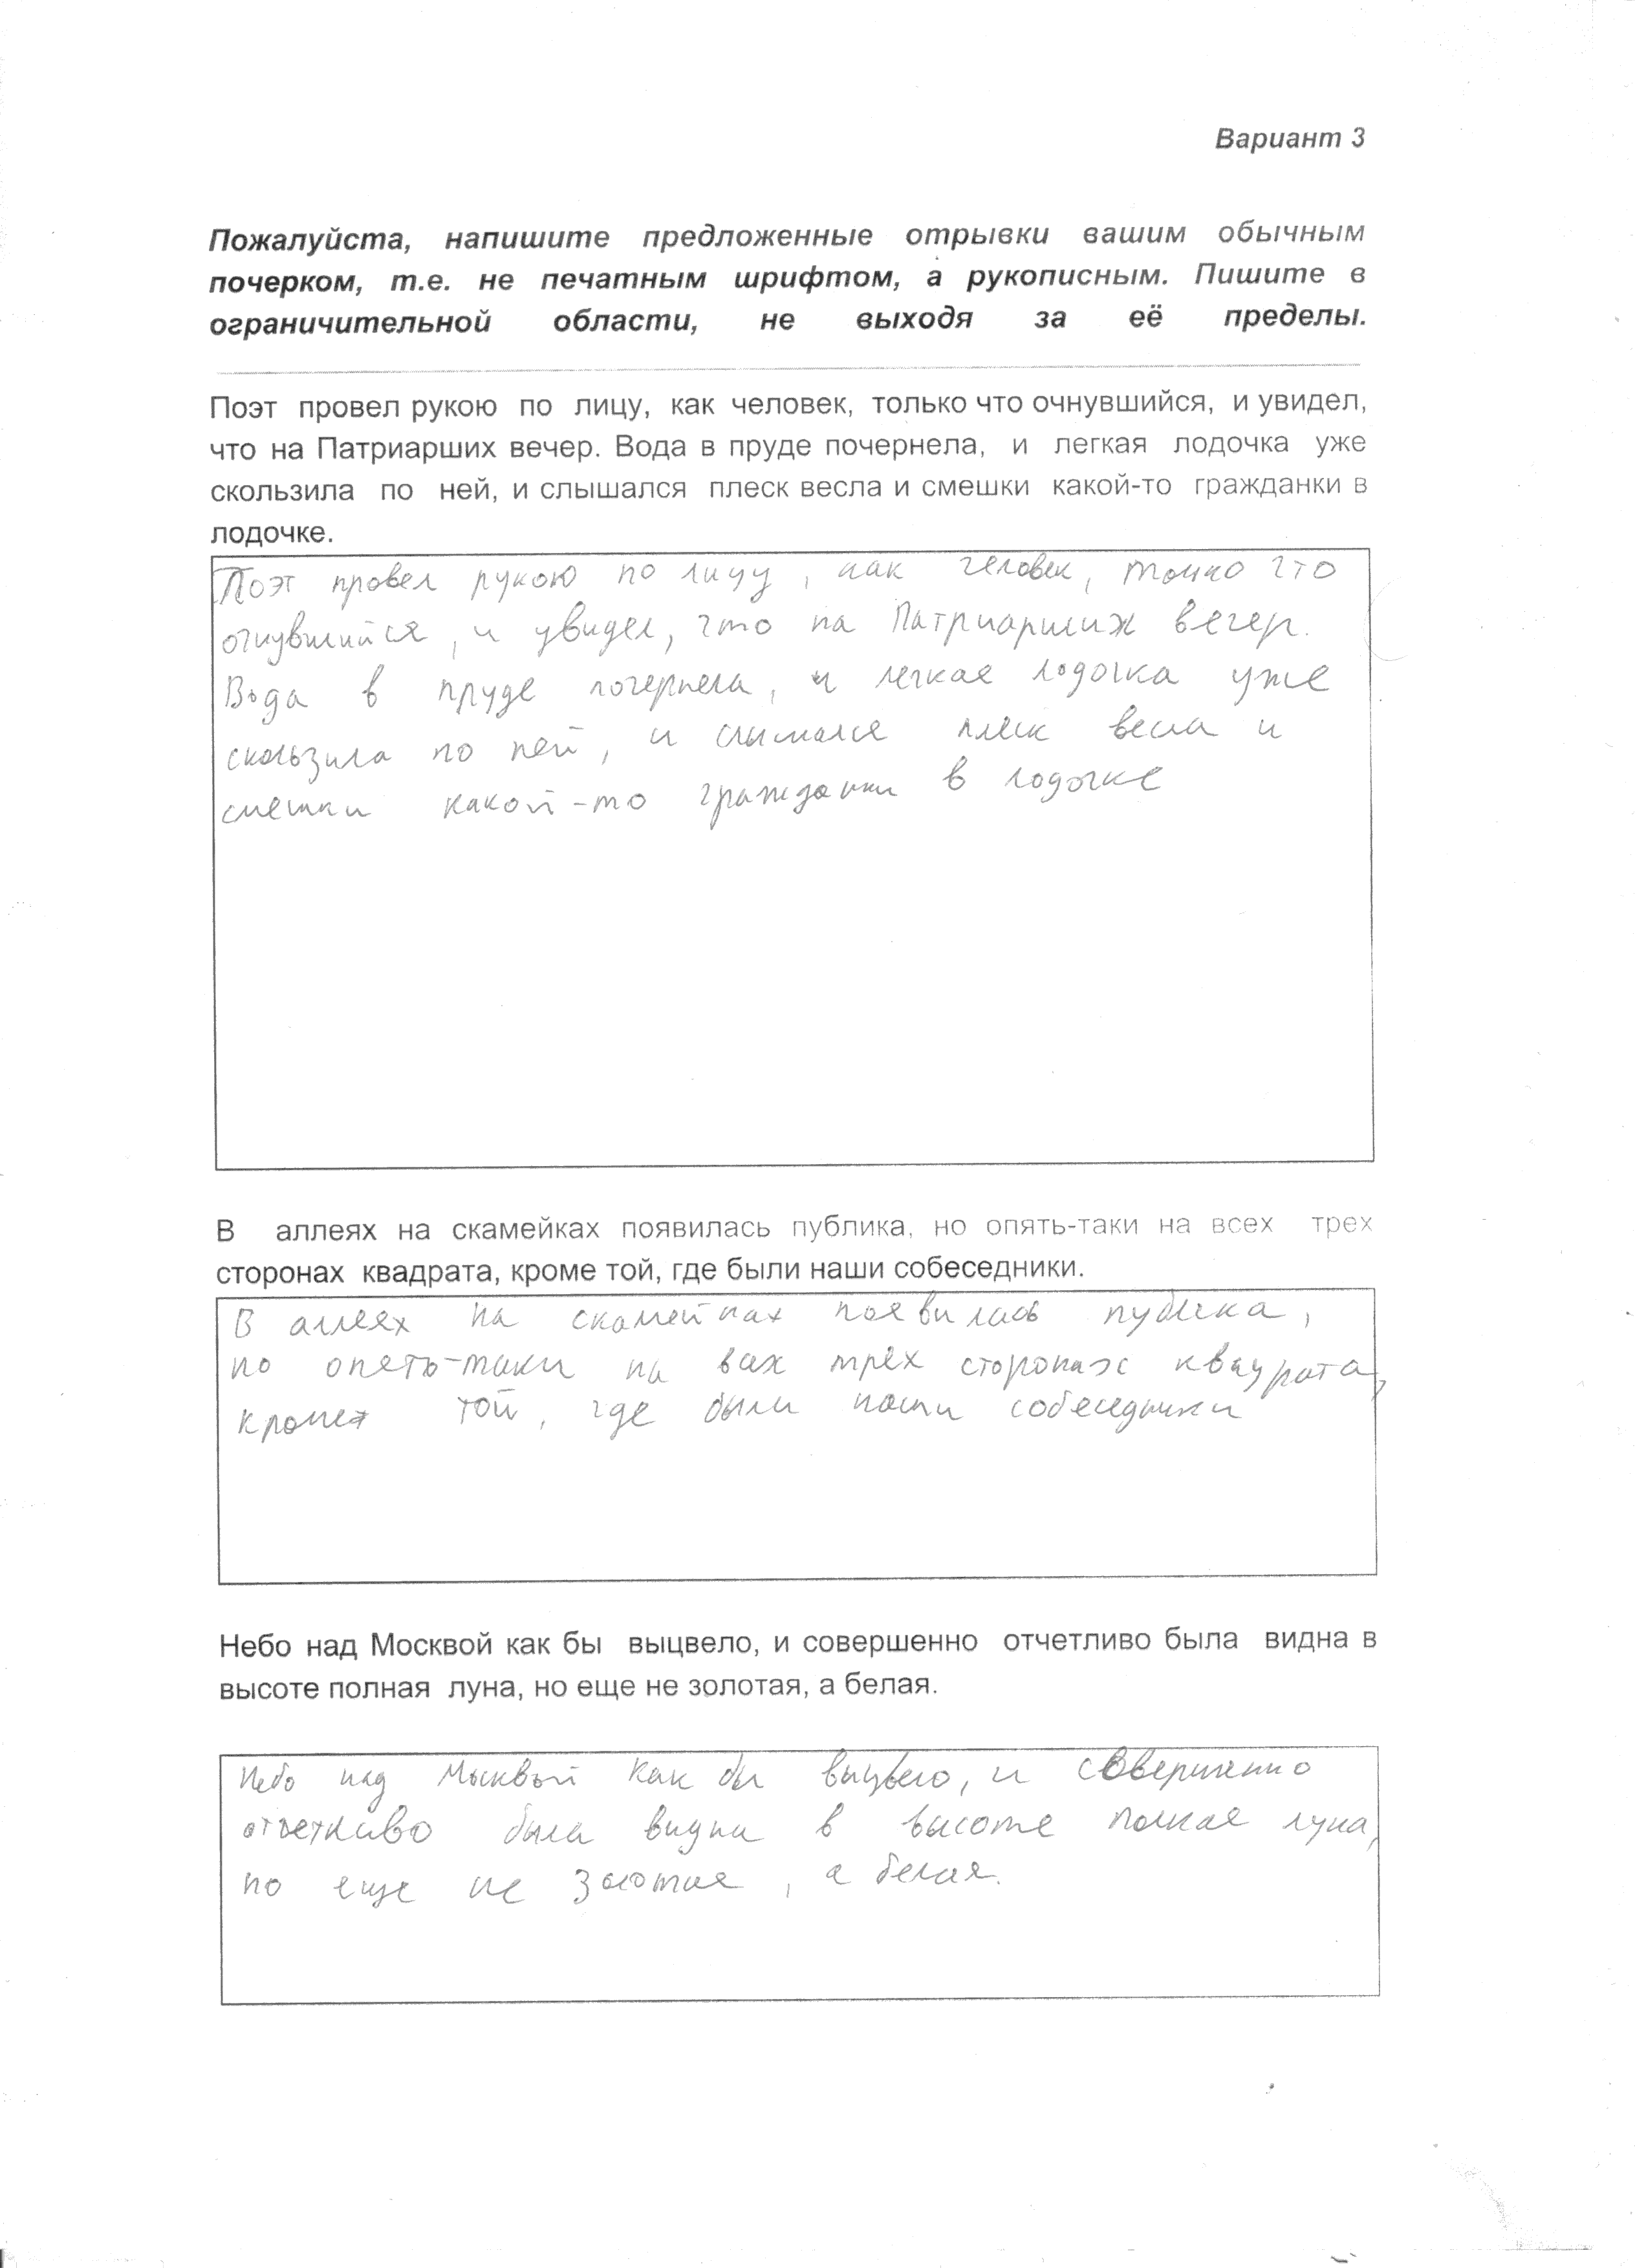 Вариант 3
Пожалуйста, напишите предложенные отрывки вашим обычным
почерком, т.е. не печатным шрифтом, а рукописным. Пишите в
ограничительной области, не выходя за её пределы.
Поэт провел рукою по лицу, как человек, только что очнувшийся, и увидел,
что на Патриарших вечер. Вода в пруде почернела, и легкая лодочка уже
скользила по ней, и слышался плеск весла и смешки какой-то гражданки в
лодочке.
Поэт провел рукою по лицу, как человек, только что
очнувшийся, и увидел, что на Патриарших вечер.
Вода в пруде почернела, и легкая лодочка уже
скользила по ней, и слышался плеск весла и
смешки какой-то гражданки в лодочке
В аллеях на скамейках появилась публика, но опять-таки на всех трех
сторонах квадрата, кроме той, где были наши собеседники.
В аллеях на скамейках появилась публика,
но опять-таки на всех трёх сторонах квадрата,
кроме той, где были наши собеседники
Небо над Москвой как бы выцвело, и совершенно отчетливо была видна в
высоте полная луна, но еще не золотая, а белая.
Небо над Москвой как бы выцвело, и совершенно
отчетливо была видна в высоте полная луна,
но еще не золотая, а белая.